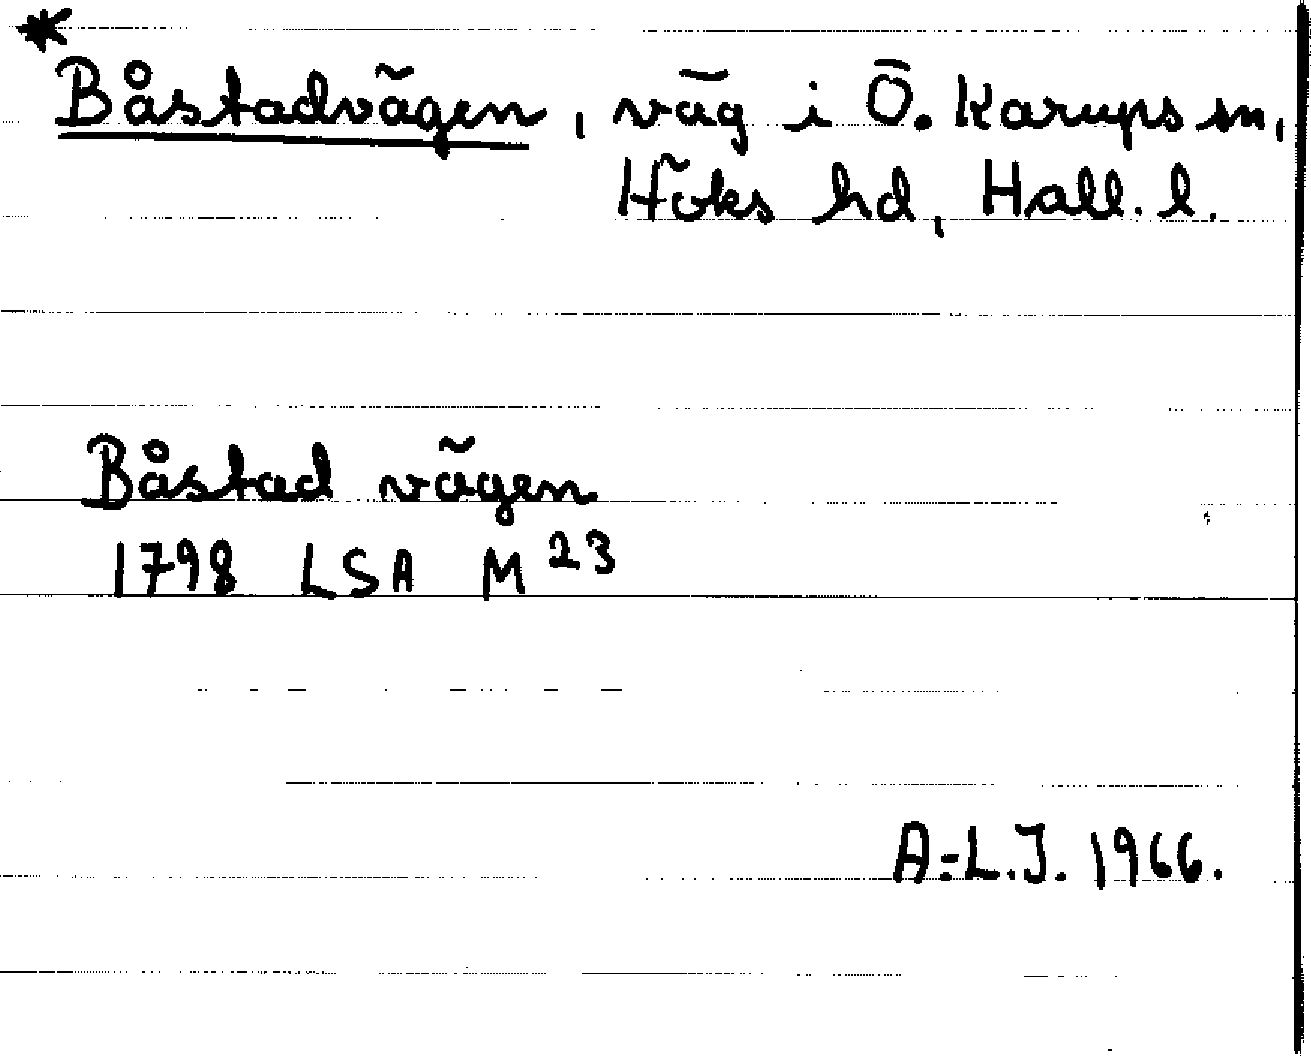 *
Båstadvägen, väg i Ö. Karups sn,
Höks hd, Hall. l.
Båstad vägen
1798 LSA M 23
A.-L.J. 1966.